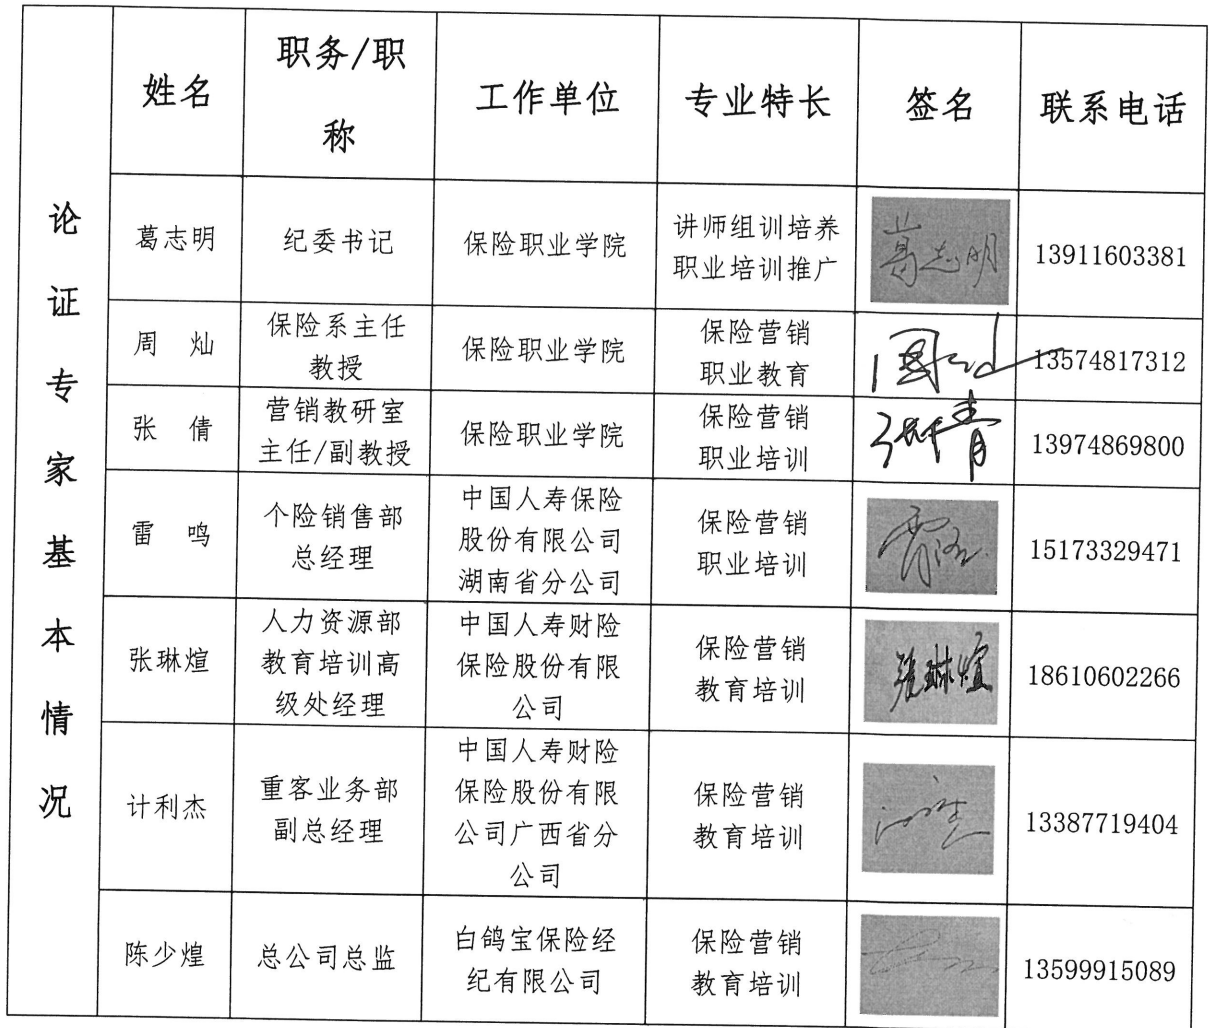 论证专家基本情况
姓名
职务/职
称
工作单位
专业特长
签名
联系电话
葛志明
纪委书记
保险职业学院
讲师组训培养
职业培训推广
葛志明
13911603381
周 灿
保险系主任
教授
保险职业学院
保险营销
职业教育
13574817312
张 倩
营销教研室
主任/副教授
保险职业学院
保险营销
职业培训
13974869800
雷 鸣
个险销售部
总经理
中国人寿保险
股份有限公司
湖南省分公司
保险营销
职业培训
15173329471
张琳煊
人力资源部
教育培训高
级处经理
中国人寿财险
保险股份有限
公司
保险营销
教育培训
张琳煊
18610602266
计利杰
重客业务部
副总经理
中国人寿财险
保险股份有限
公司广西省分
公司
保险营销
教育培训
13387719404
陈少煌
总公司总监
白鸽宝保险经
纪有限公司
保险营销
教育培训
13599915089